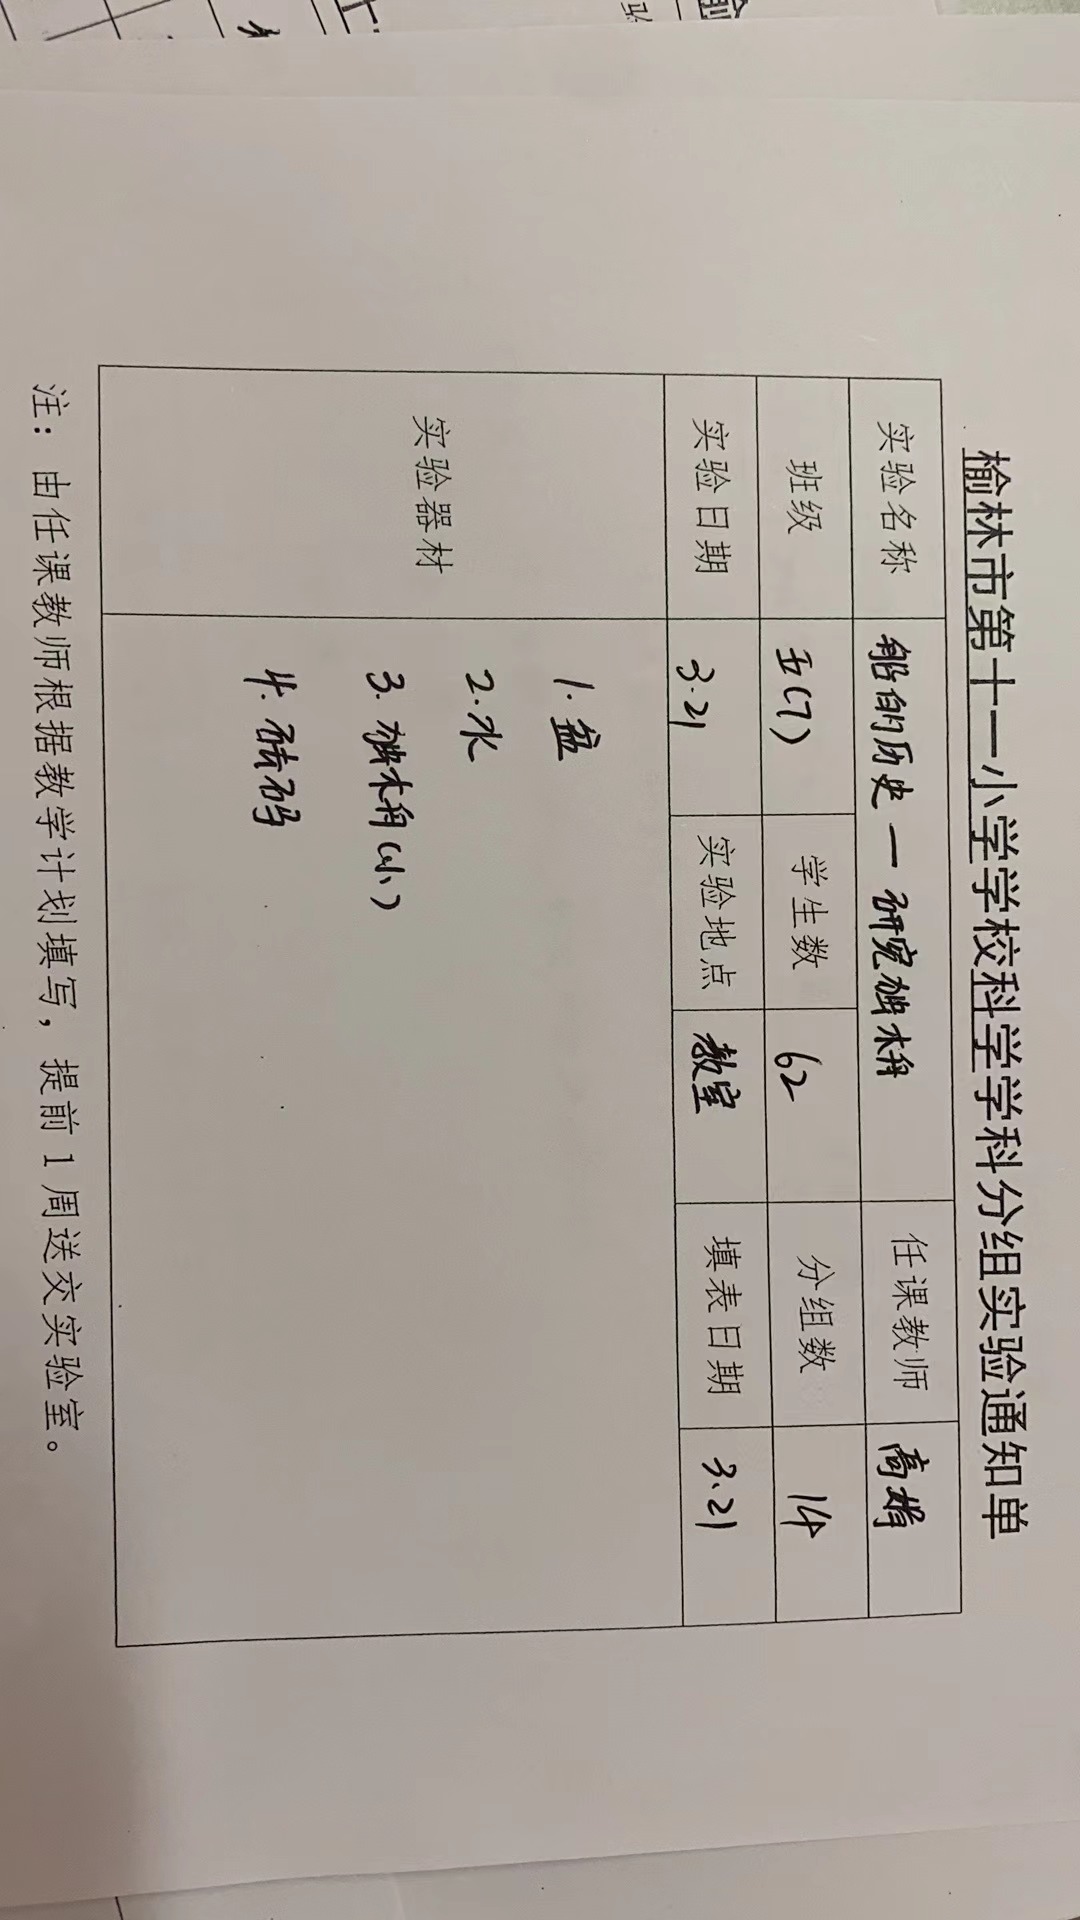 榆林市第十一小学学校科学学科分组实验通知单
实验名称 船的历史一研究独木舟 任课教师 高婷
班级 五(7) 学生数 62 分组数 14
实验日期 3.21 实验地点 教室 填表日期 3.21
实验器材
1.盆
2.水
3.独木舟(小)
4.砝码
注：由任课教师根据教学计划填写，提前1周送交实验室。